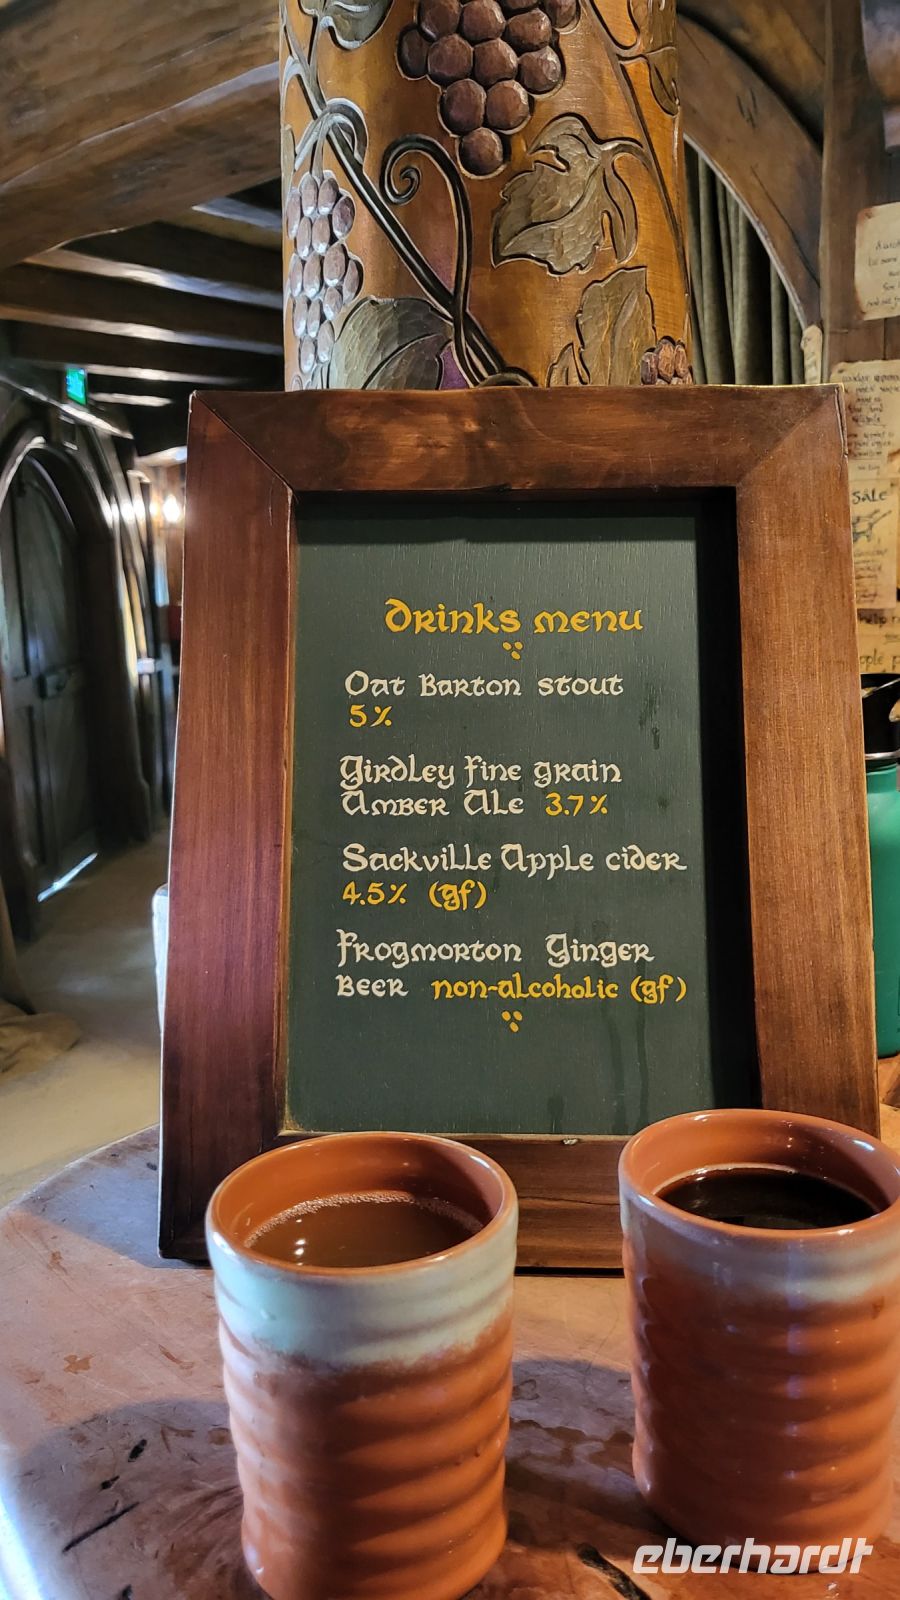 Drinks menu
Oat Barton stout
5%
Girdley fine grain
Amber Ale 3.7%
Sackville Apple cider
4.5% (gf)
Frogmorton Ginger
Beer non-alcoholic (gf)
SALE
eberhardt